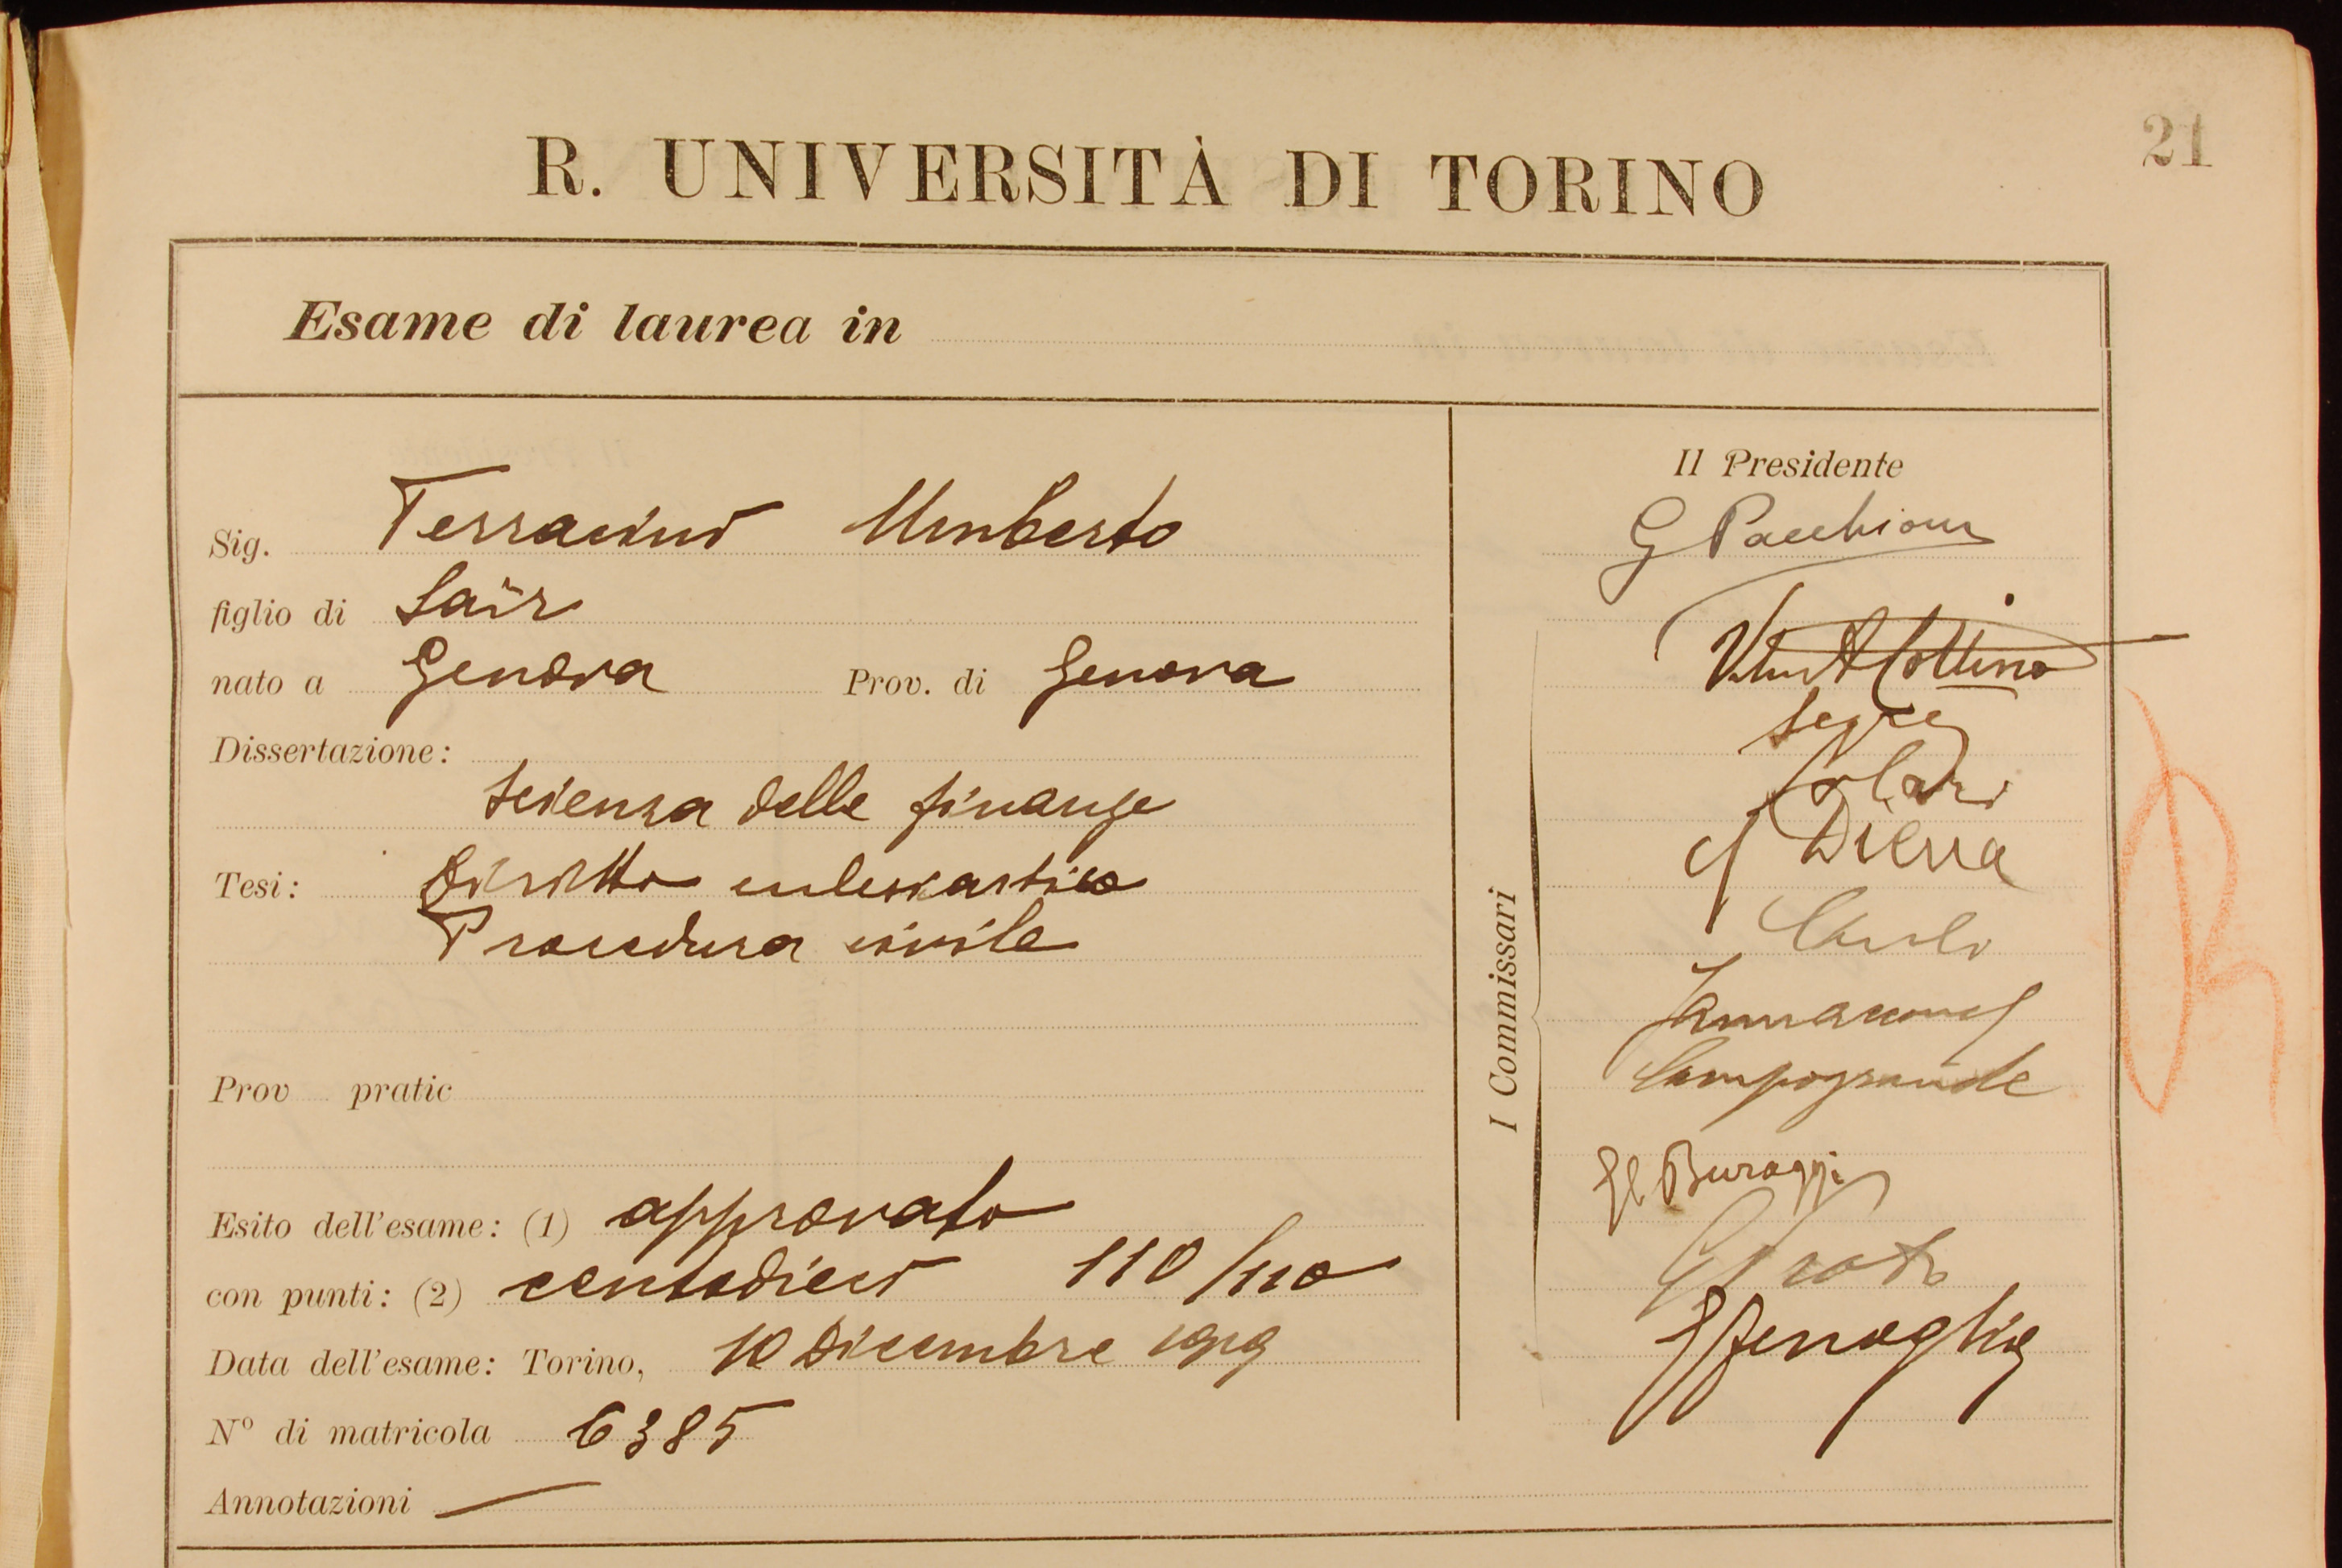 21
R. UNIVERSITÀ DI TORINO
Esame di laurea in
Sig. Terracini Umberto
figlio di Jair
nato a Genova Prov. di Genova
Dissertazione:
Scienza delle finanze
Tesi: Diritto ecclesiastico
Procedura civile
Prov pratic
Esito dell'esame: (1) approvato
con punti: (2) centodieci 110/110
Data dell'esame: Torino, 10 Dicembre 1919
N° di matricola 6385
Annotazioni —
Il Presidente
G Pacchioni
I Commissari
Segre
Solari
Diena
Jannaccone
Campogrande
Buraggi
G Prato